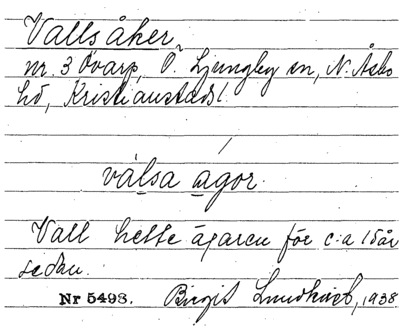 Vallsåker
nr. 3 Övarp, Ö. Ljungby sn, N. Åsbo
hd, Kristianstads l.
vàlsa agor.
Vall hette ägaren för c:a 15 år
sedan.
Nr 5498. Birgit Lundkvist, 1938